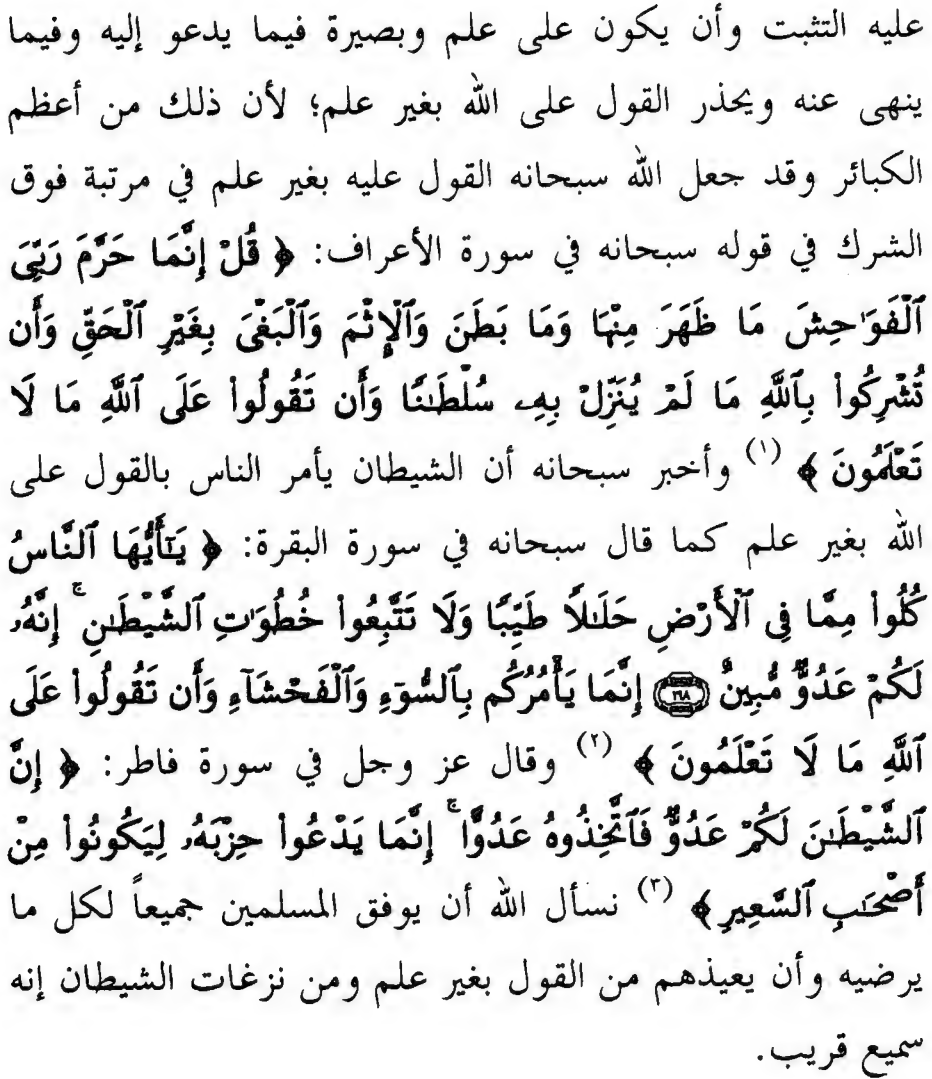 عليه التثبت وأن يكون على علم وبصيرة فيما يدعو إليه وفيما
ينهى عنه ويحذر القول على الله بغير علم؛ لأن ذلك من أعظم
الكبائر وقد جعل الله سبحانه القول عليه بغير علم في مرتبة فوق
الشرك في قوله سبحانه في سورة الأعراف: ﴿ قُلْ إِنَّمَا حَرَّمَ رَبِّىَ
ٱلْفَوَٰحِشَ مَا ظَهَرَ مِنْهَا وَمَا بَطَنَ وَٱلْإِثْمَ وَٱلْبَغْىَ بِغَيْرِ ٱلْحَقِّ وَأَن
تُشْرِكُوا۟ بِٱللَّهِ مَا لَمْ يُنَزِّلْ بِهِۦ سُلْطَٰنًا وَأَن تَقُولُوا۟ عَلَى ٱللَّهِ مَا لَا
تَعْلَمُونَ ﴾ (١) وأخبر سبحانه أن الشيطان يأمر الناس بالقول على
الله بغير علم كما قال سبحانه في سورة البقرة: ﴿ يَٰٓأَيُّهَا ٱلنَّاسُ
كُلُوا۟ مِمَّا فِى ٱلْأَرْضِ حَلَٰلًا طَيِّبًا وَلَا تَتَّبِعُوا۟ خُطُوَٰتِ ٱلشَّيْطَٰنِ ۚ إِنَّهُۥ
لَكُمْ عَدُوٌّ مُّبِينٌ ١٦٨ إِنَّمَا يَأْمُرُكُم بِٱلسُّوٓءِ وَٱلْفَحْشَآءِ وَأَن تَقُولُوا۟ عَلَى
ٱللَّهِ مَا لَا تَعْلَمُونَ ﴾ (٢) وقال عز وجل في سورة فاطر: ﴿ إِنَّ
ٱلشَّيْطَٰنَ لَكُمْ عَدُوٌّ فَٱتَّخِذُوهُ عَدُوًّا ۚ إِنَّمَا يَدْعُوا۟ حِزْبَهُۥ لِيَكُونُوا۟ مِنْ
أَصْحَٰبِ ٱلسَّعِيرِ ﴾ (٣) نسأل الله أن يوفق المسلمين جميعاً لكل ما
يرضيه وأن يعيذهم من القول بغير علم ومن نزغات الشيطان إنه
سميع قريب.